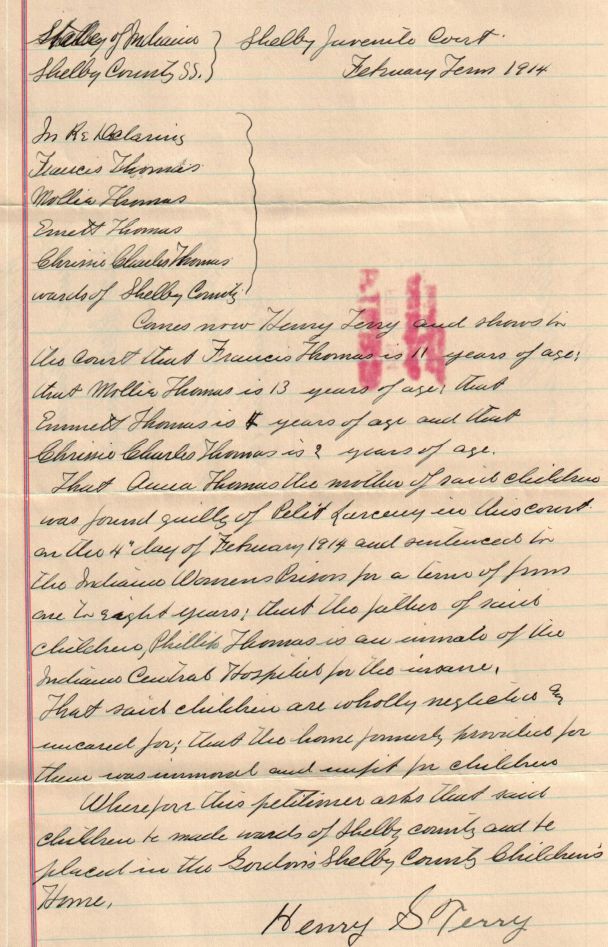 State of Indiana } Shelby Juvenile Court.
Shelby County SS. } February Term 1914
In Re Declaring
Francis Thomas
Mollie Thomas
Emett Thomas
Chrissie Charles Thomas
wards of Shelby County
Comes now Henry Terry and shows to
the court that Francis Thomas is 11 years of age;
that Mollie Thomas is 13 years of age; that
Emmett Thomas is 4 years of age and that
Chrissie Charles Thomas is 2 years of age.
That Anna Thomas the mother of said children
was found guilty of Petit Larceny in this court
on the 4" day of February 1914 and sentenced to
the Indiana Womens Prison for a term of from
one to eight years; that the father of said
children, Phillip Thomas is an inmate of the
Indiana Central Hospital for the insane.
That said children are wholly neglected &
uncared for; that the home formerly provided for
them was immoral and unfit for children
Wherefore this petitioner asks that said
children be made wards of Shelby county and be
placed in the Gordon's Shelby County Children's
Home.
Henry S Terry